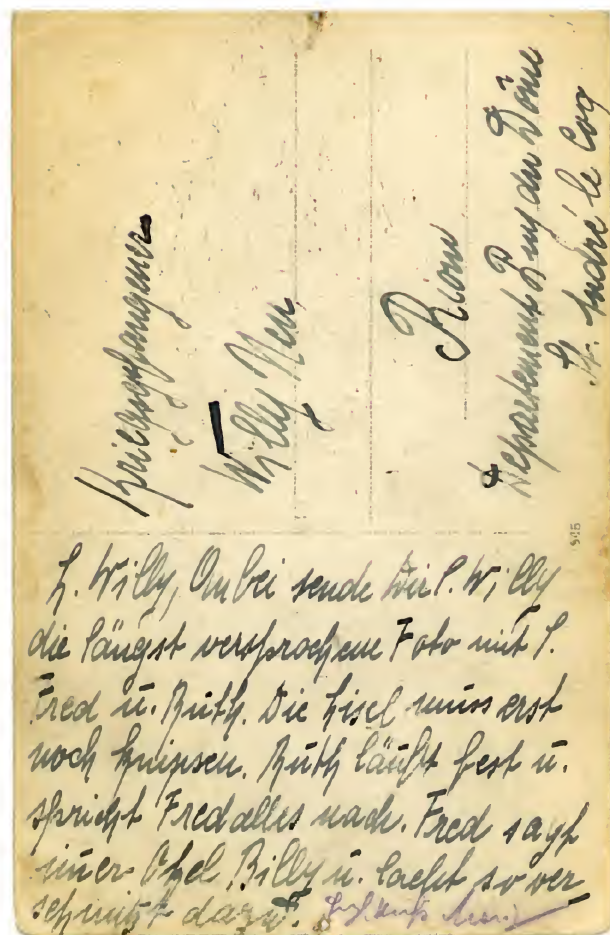 Kriegsgefangener
Willy Neu
Riom
Departement Puy du Dôme
St. André le Coq
L. Willy, Anbei sende Dir l. Willy
die längst versprochene Foto mit l.
Fred u. Ruth. Die Lisel muss erst
noch knipsen. Ruth läuft fest u.
spricht Fred alles nach. Fred sagt
imer Okel Billy u. lacht so ver
schmitzt dazu.
545